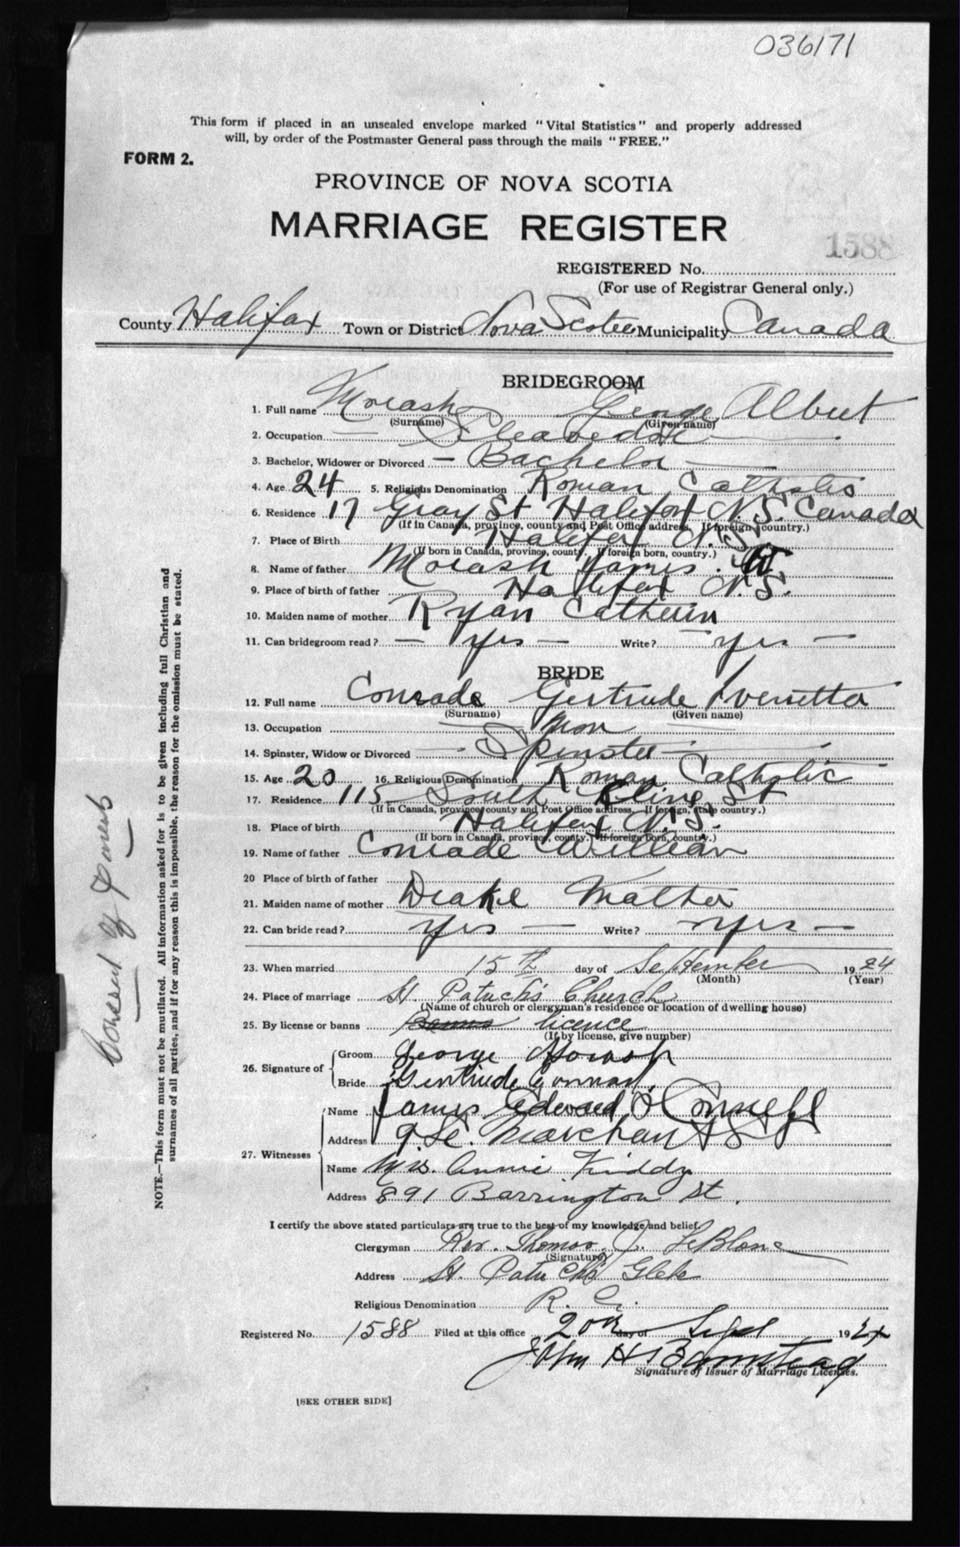 036171
This form if placed in an unsealed envelope marked "Vital Statistics" and properly addressed
will, by order of the Postmaster General pass through the mails "FREE."
FORM 2.
PROVINCE OF NOVA SCOTIA
MARRIAGE REGISTER
1588
REGISTERED No.
(For use of Registrar General only.)
County Halifax Town or District Nova Scotia Municipality Canada
BRIDEGROOM
1. Full name Morash George Albert
(Surname) (Given name)
2. Occupation
3. Bachelor, Widower or Divorced — Bachelor —
4. Age 24 5. Religious Denomination Roman Catholic
6. Residence 17 Gray St Halifax N.S. Canada
(If in Canada, province, county and Post Office address, If foreign, country.)
7. Place of Birth Halifax N.S.
(If born in Canada, province, county. If foreign born, country.)
8. Name of father Morash James
9. Place of birth of father Halifax N.S.
10. Maiden name of mother Ryan Catherin
11. Can bridegroom read? — yes — Write? — yes —
BRIDE
12. Full name Conrade Gertrude
(Surname) (Given name)
13. Occupation non
14. Spinster, Widow or Divorced — Spinster —
15. Age 20 16. Religious Denomination Roman Catholic
17. Residence 115 South Kline St
(If in Canada, province, county and Post Office address, If foreign, state country.)
18. Place of birth Halifax N.S.
(If born in Canada, province, county. If foreign born, country.)
19. Name of father Conrade William
20 Place of birth of father
21. Maiden name of mother Drake
22. Can bride read? yes — Write? — yes —
23. When married 15th day of September 1924
(Month) (Year)
24. Place of marriage St. Patrick's Church
(Name of church or clergyman's residence or location of dwelling house)
25. By license or banns Banns licence
(If by license, give number)
26. Signature of
Groom George Morash
Bride Gertrude Conrad
27. Witnesses
Name James Edward O'Connell
Address 9 Le Marchant St
Name Mrs. Annie Kiddy
Address 891 Barrington St.
I certify the above stated particulars are true to the best of my knowledge and belief.
Clergyman Rev. Thomas J. LeBlanc
(Signature)
Address St. Patrick's Glebe
Religious Denomination R. C.
Registered No. 1588 Filed at this office 20th day of Sept 1924
John H Barnstead
Signature of Issuer of Marriage Licenses.
[SEE OTHER SIDE]
NOTE.—This form must not be mutilated. All information asked for is to be given including full Christian and
surnames of all parties, and if for any reason this is impossible, the reason for the omission must be stated.
Consent of Parents